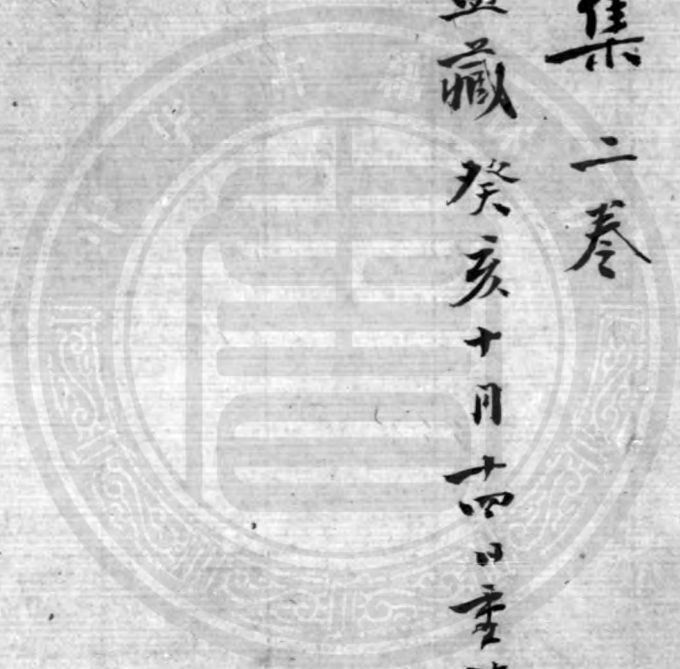 集 二卷
藏 癸亥十月十四日重